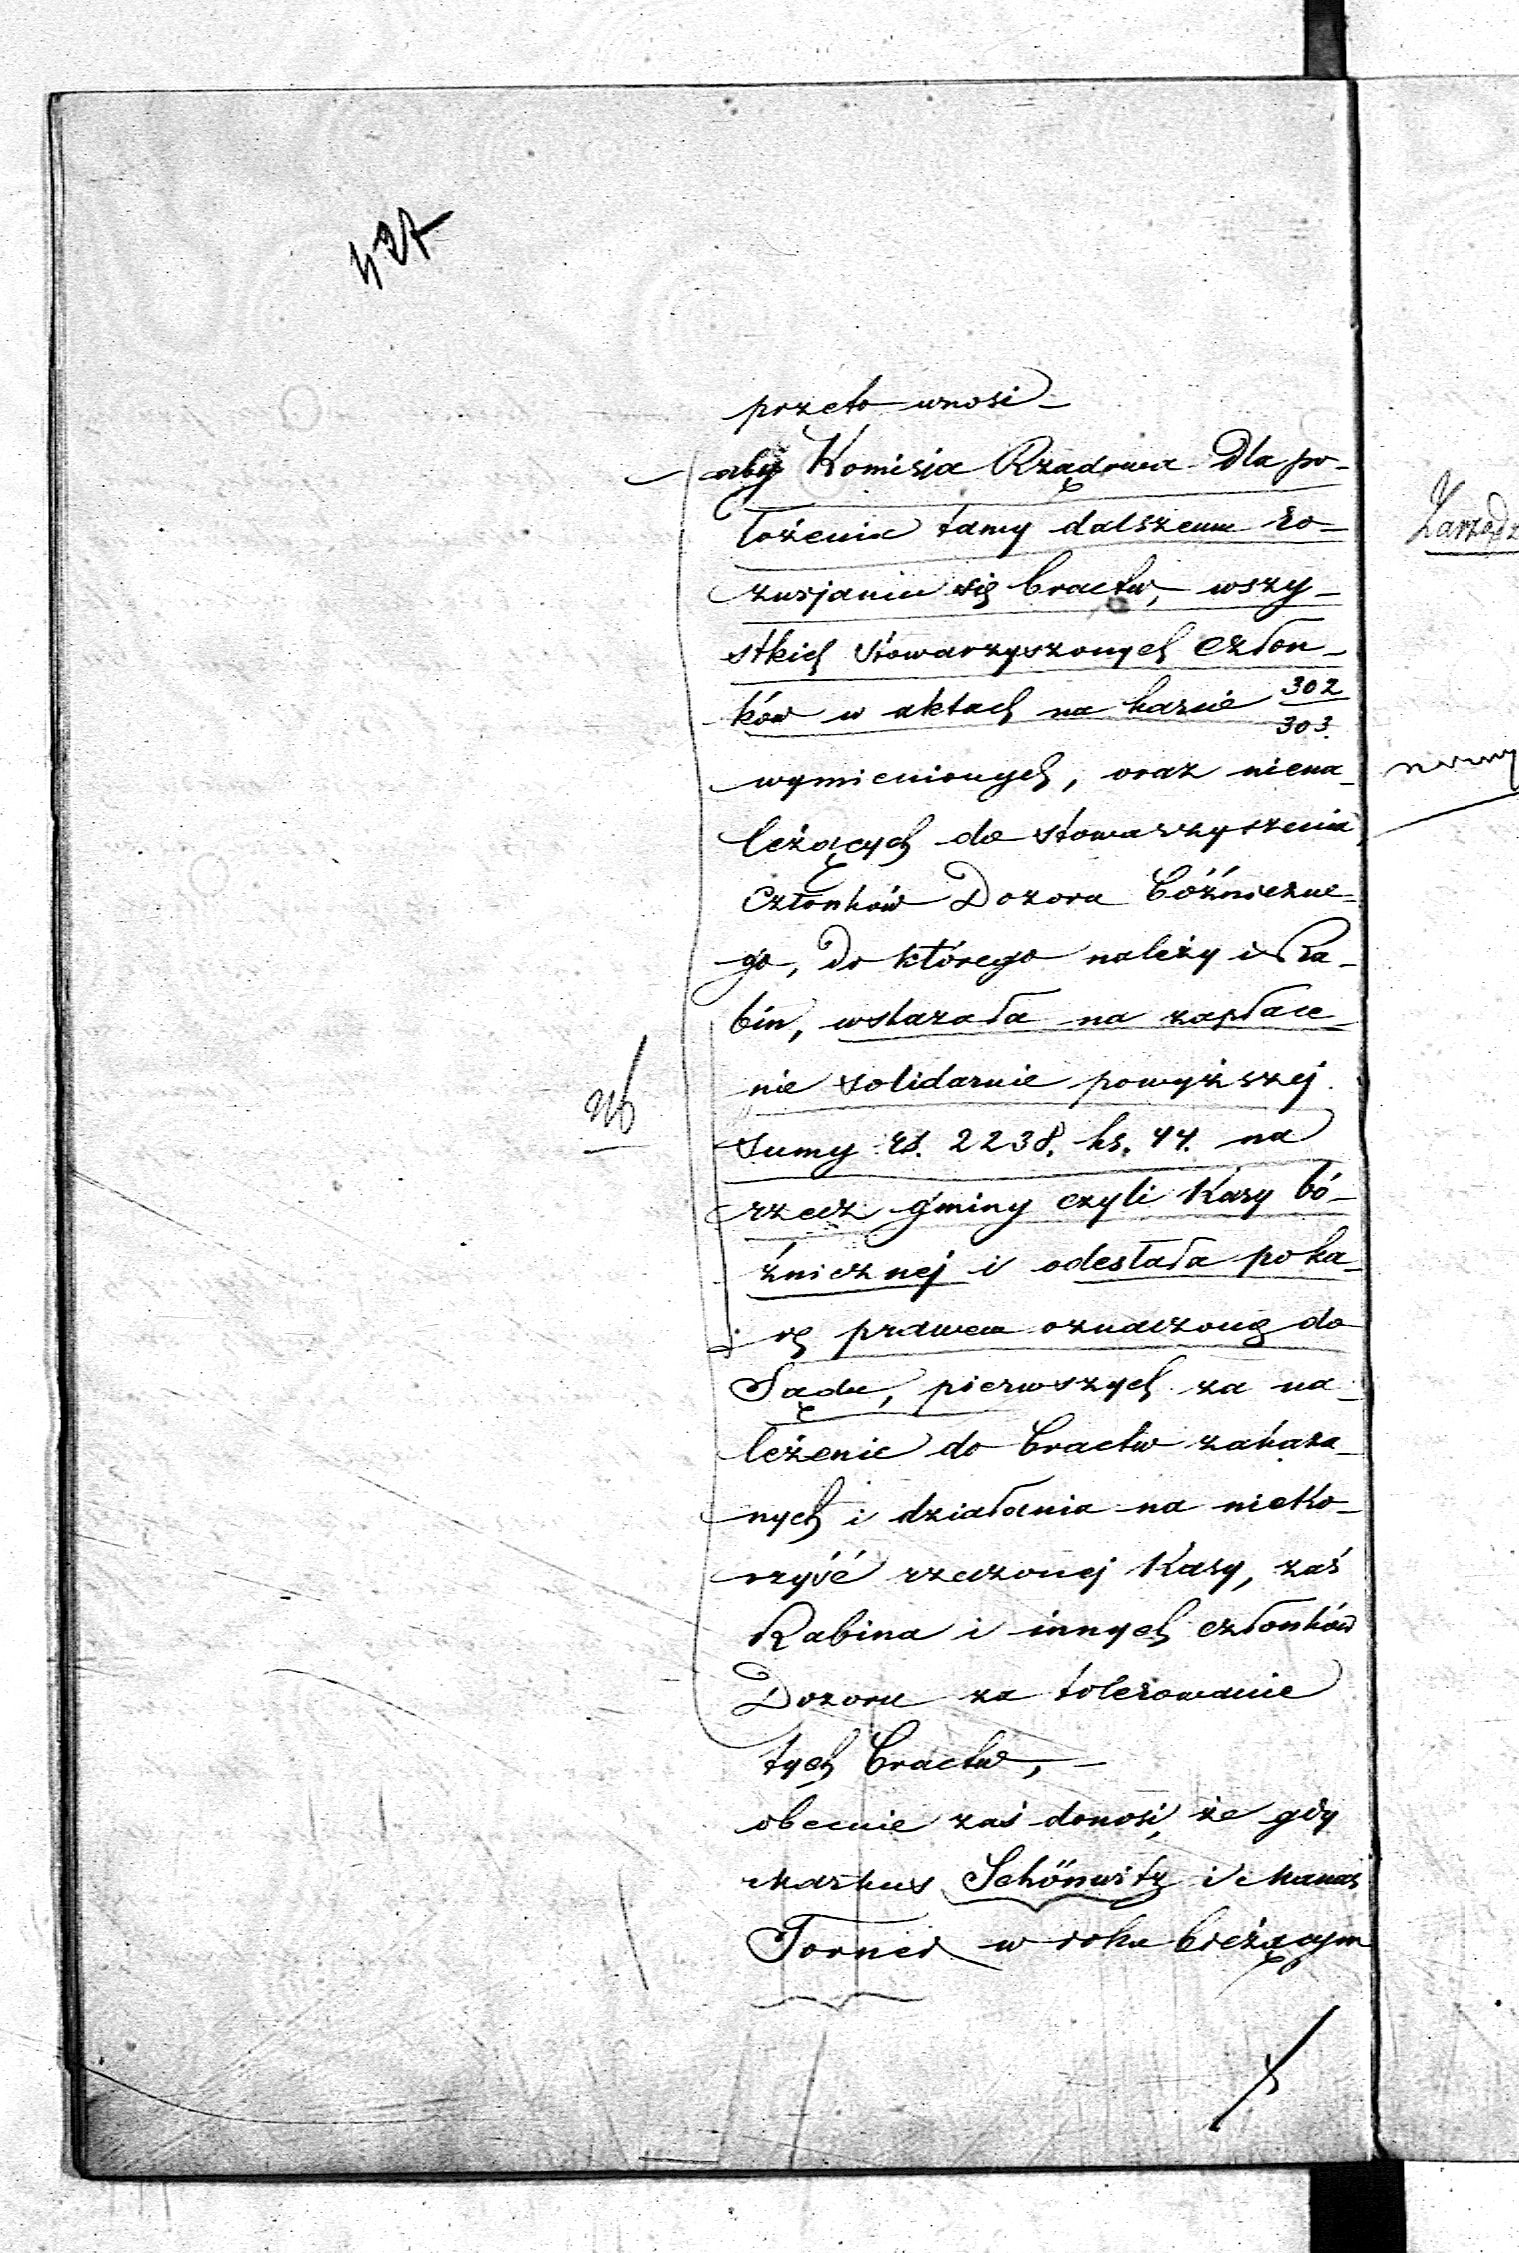 427
przeto wnosi –
aby Komisia Rządowa dla po-
łożenia tamy dalszemu ro-
zwijaniu się bractw, – wszy-
stkich stowarzyszonych człon-
ków w aktach na karcie 302/303.
wymienionych, oraz niena-
leżących do stowarzyszenia
członków Dozoru bóźniczne-
go, do którego należy i Ra-
bin, wskazała na zapłace-
nie solidarnie powyższej
Nb
sumy rs. 2238. ks. 44. na
rzecz gminy czyli Kasy bó-
źnicznej i odesłała po ka-
rę prawem oznaczoną do
Sądu, pierwszych za na-
leżenie do bractw zakaza-
nych i działania na nieko-
rzyść rzeczonej Kasy, zaś
Rabina i innych członków
Dozoru za tolerowanie
tych bractw, –
obecnie zaś donosi, że gdy
Markus Schönwitz i Manas
Torner w roku bieżącym